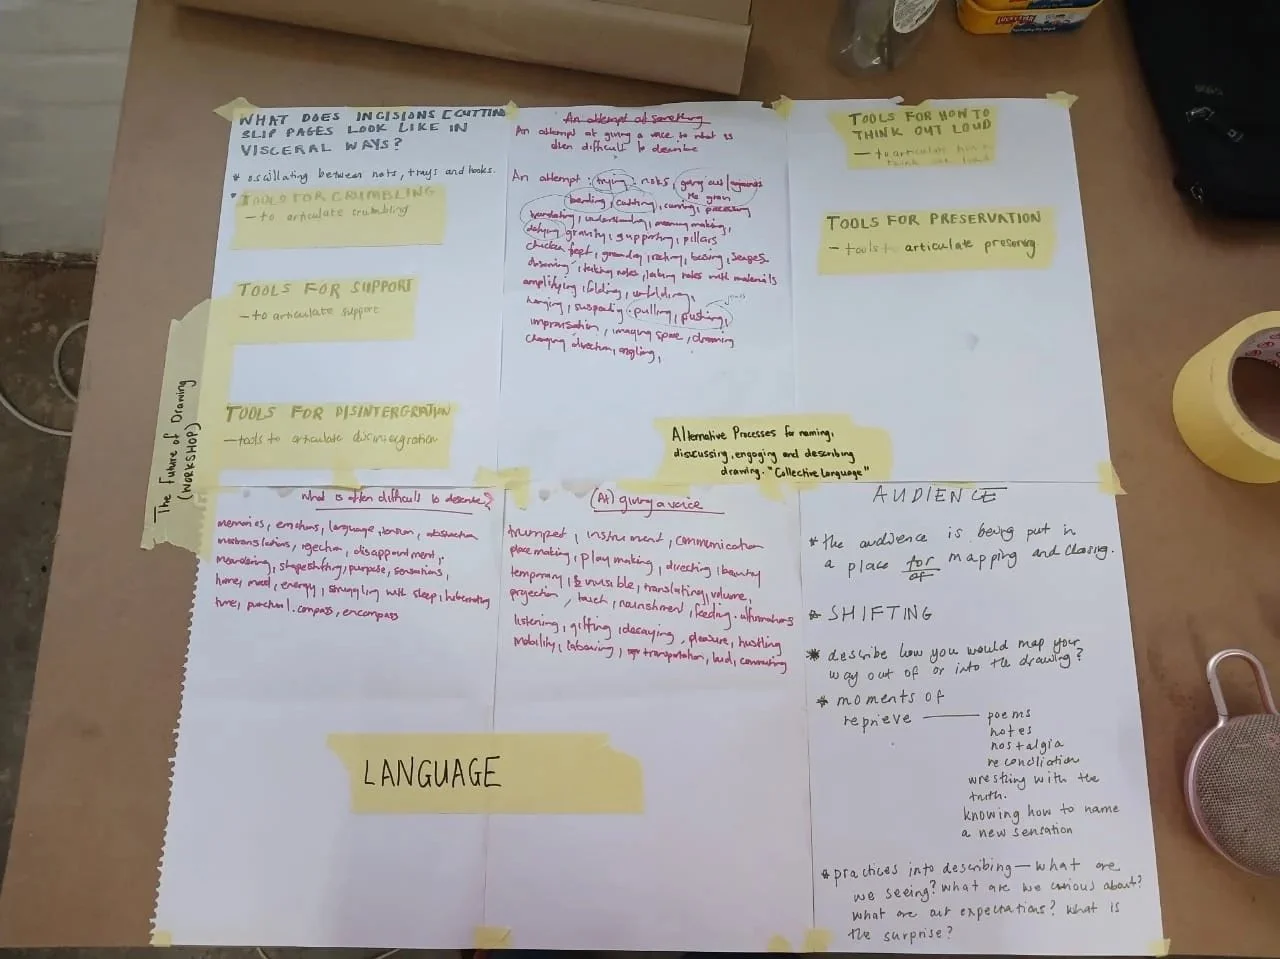 WHAT DOES INCISIONS [CUTTING
SLIP PAGES LOOK LIKE IN
VISCERAL WAYS?
* oscillating between nots, trays and hooks.
TOOLS FOR CRUMBLING
— to articulate crumbling
TOOLS FOR SUPPORT
— to articulate support
TOOLS FOR DISINTERGRATION
— tools to articulate disintergration
— The Future of Drawing
(WORKSHOP)
An attempt at something
An attempt at giving a voice to what is
often difficult to describe
An attempt: trying: nots, going out/against
the grain
bending, cutting, carving, processing
translating, understanding, meaning making,
defying gravity, supporting, pillars
chicken feet, grounding, rooting, basing, scapes
observing, taking notes, taking notes with materials
amplifying, folding, unfolding,
hanging, suspending, pulling, pushing,
improvisation, imaging space, drawing
changing direction, angling,
TOOLS FOR HOW TO
THINK OUT LOUD
— to articulate how to
think out loud
TOOLS FOR PRESERVATION
— tools to articulate preserving
Alternative Processes for naming,
discussing, engaging and describing
drawing. "Collective Language"
What is often difficult to describe?
memories, emotions, language, tension, abstraction
mistranslations, rejection, disappointment,
meandering, shapeshifting, purpose, sensations,
home, mood, energy, struggling with sleep, hibernating
time, compass, encompass
(At) giving a voice
trumpet, instrument, communication
place making, play making, directing, beauty
temporary, & invisible, translating, volume,
projection, touch, nourishment, feeding, affirmations
listening, gifting, decaying, pleasure, hustling
mobility, labouring, transportation, land, commuting
AUDIENCE
* the audience is being put in
a place for mapping and closing.
of
* SHIFTING
* describe how you would map your
way out of or into the drawing?
* moments of
reprieve — poems
notes
nostalgia
reconciliation
wrestling with the
truth.
knowing how to name
a new sensation
* practices into describing — what are
we seeing? what are we curious about?
what are our expectations? what is
the surprise?
LANGUAGE